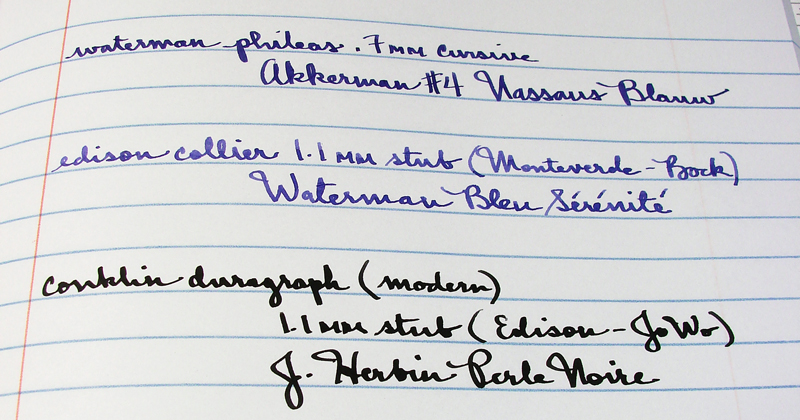 waterman phileas .7mm cursive
Akkerman #4 Nassaus Blauw
edison collier 1.1mm stub (Monteverde-Bock)
Waterman Bleu Sérénité
conklin duragraph (modern)
1.1mm stub (Edison-JoWo)
J. Herbin Perle Noire